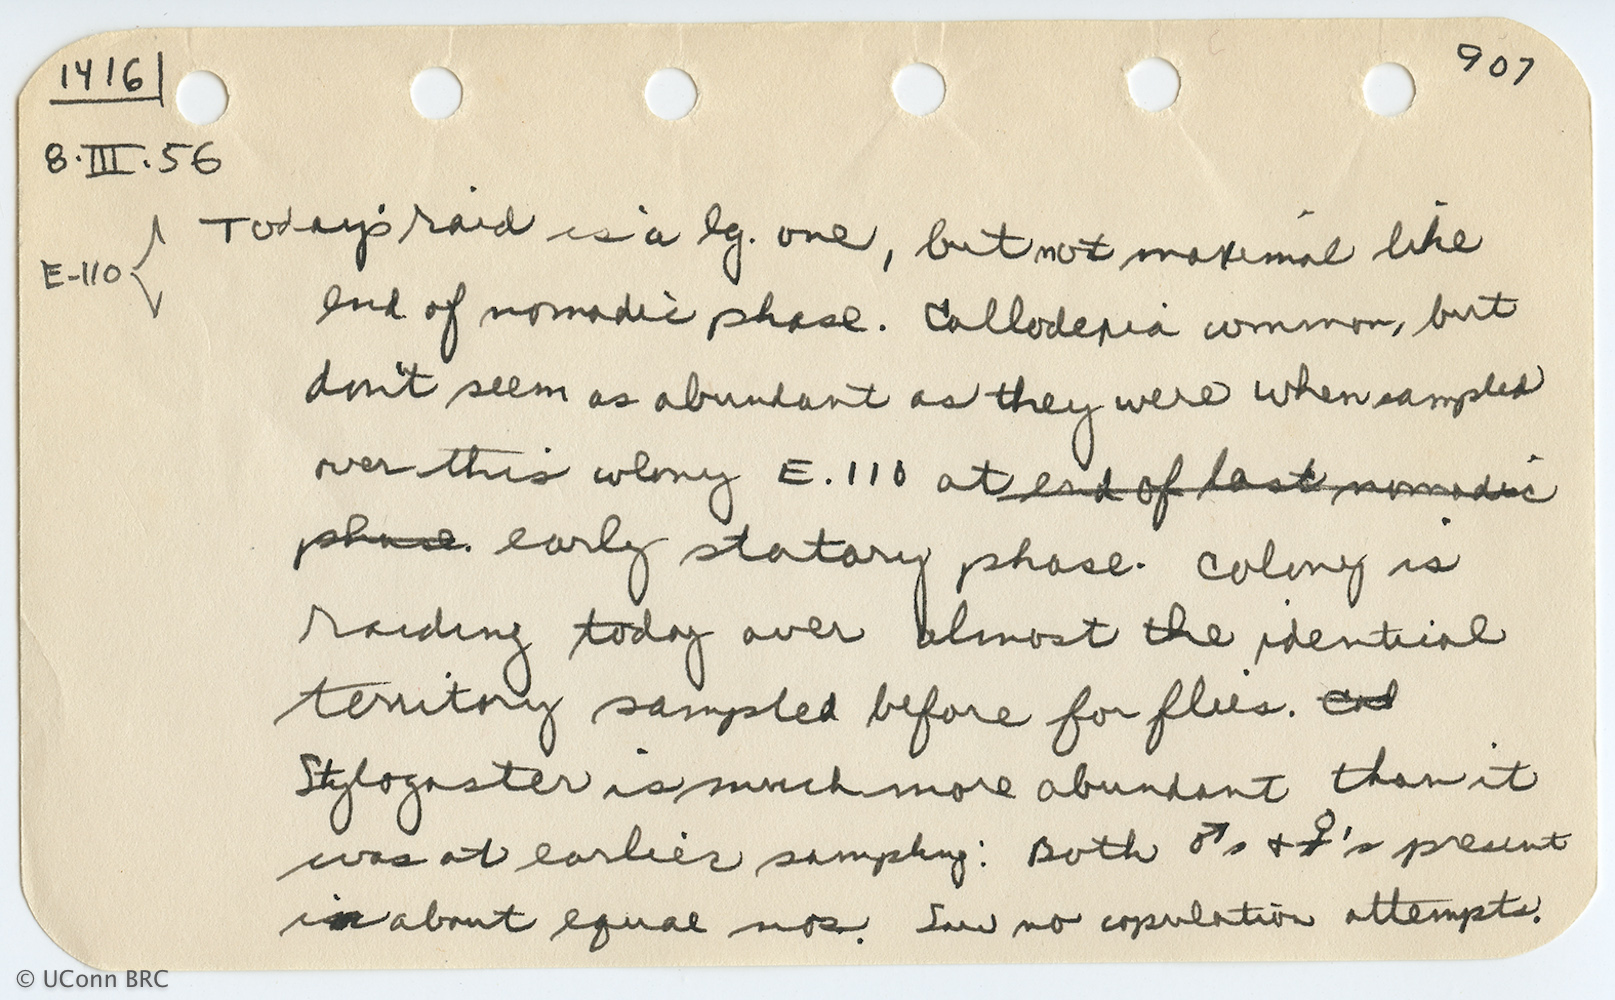 1416
907
8·III·56
Today's raid is a lg. one, but not maximal like
E-110
end of nomadic phase. Calloderia common, but
don't seem as abundant as they were when sampled
over this colony E.110 at end of last nomadic
phase. early statary phase. Colony is
raiding today over almost the identical
territory sampled before for flies. Cal
Stylogaster is much more abundant than it
was at earlier sampling: Both ♂s + ♀'s present
in about equal nos. Saw no copulation attempts.
© UConn BRC